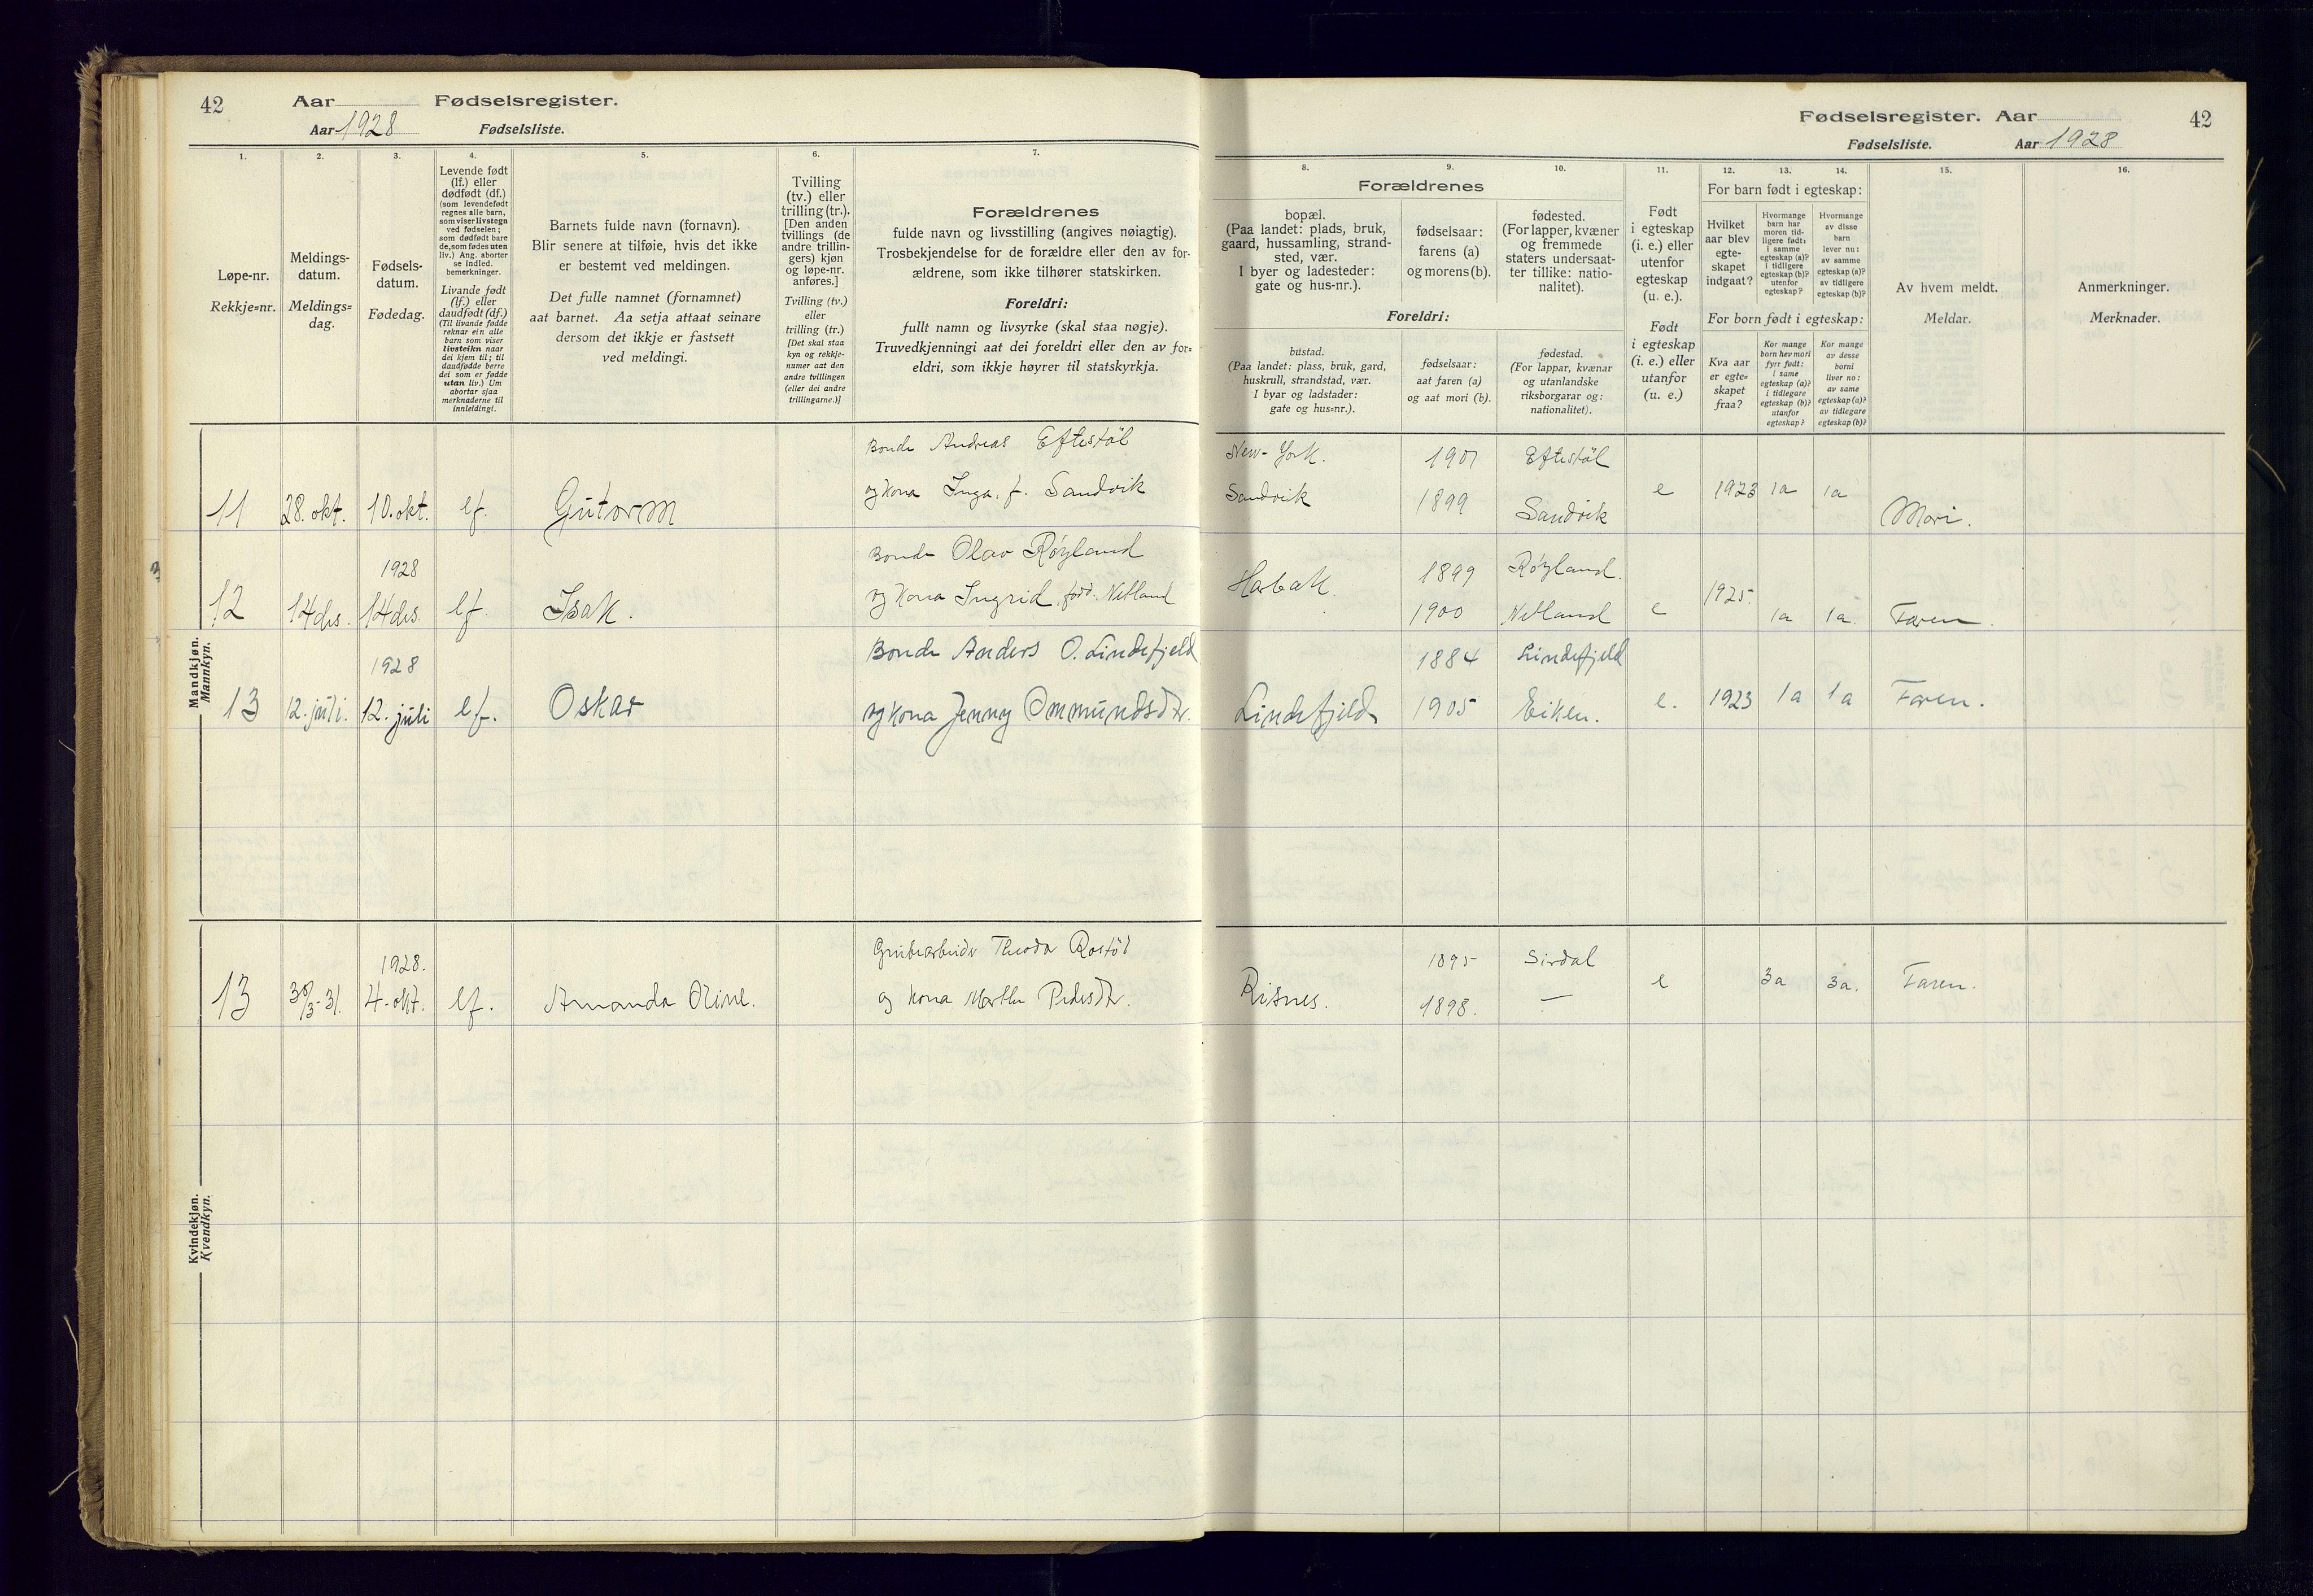 42
Aar
Fødselsregister.
Aar 1928
Fødselsliste.
1.
Løpe-nr.
Rekkje=nr.
2.
Meldings-
datum.
Meldings=
dag.
3.
Fødsels-
datum.
Fødedag.
4.
Levende født
(lf.) eller
dødfødt (df.)
(som levendefødt
regnes alle barn,
som viser livstegn
ved fødselen;
som dødfødt bare
de, som fødes uten
liv.) Ang. aborter
se indled.
bemerkninger.
Livande født
(lf.) eller
daudfødt (df.)
(Til livande fødde
reknar ein alle
barn som viser
livsteikn naar
dei kjem til; til
daudfødde berre
dei som er fødde
utan liv.) Um
abortar sjaa
merknaderne til
innleidingi.
5.
Barnets fulde navn (fornavn).
Blir senere at tilføie, hvis det ikke
er bestemt ved meldingen.
Det fulle namnet (fornamnet)
aat barnet. Aa setja attaat seinare
dersom det ikkje er fastsett
ved meldingi.
6.
Tvilling
(tv.) eller
trilling (tr.).
[Den anden
tvillings (de
andre trillin-
gers) kjøn
og løpe-nr.
anføres.]
Tvilling (tv.)
eller
trilling (tr.)
[Det skal staa
kyn og rekkje-
numer aat den
andre tvillingen
(eller dei andre
trillingarne.)]
7.
Forældrenes
fulde navn og livsstilling (angives nøiagtig).
Trosbekjendelse for de forældre eller den av for-
ældrene, som ikke tilhører statskirken.
Foreldri:
fullt namn og livsyrke (skal staa nøgje).
Truvedkjenningi aat dei foreldri eller den av for=
eldri, som ikkje høyrer til statskyrkja.
Fødselsregister. Aar
42
Fødselsliste.
Aar 1928
8.
Forældrenes
bopæl.
(Paa landet: plads, bruk,
gaard, hussamling, strand-
sted, vær.
I byer og ladesteder:
gate og hus-nr.).
9.
fødselsaar:
farens (a)
og morens (b).
10.
fødested.
(For lapper, kvæner
og fremmede
staters undersaat-
ter tillike: natio-
nalitet).
Foreldri:
bustad.
(Paa landet: plass, bruk, gard,
huskrull, strandstad, vær.
I byar og ladstader:
gate og hus=nr.).
fødselsaar:
aat faren (a)
og aat mori (b).
fødestad.
(For lappar, kvænar
og utanlandske
riksborgarar og:
nationalitet).
11.
Født
i egteskap
(i. e.) eller
utenfor
egteskap
(u. e.).
Født
i egteskap
(i. e.) eller
utanfor
(u. e.)
12.
13.
14.
For barn født i egteskap:
Hvilket
aar blev
egte-
skapet
indgaat?
Hvormange
barn har
moren tid-
ligere født:
i samme
egteskap (a)?
i tidligere
egteskap (b)?
utenfor
egteskap?
Hvormange
av disse
barn
lever nu:
av samme
egteskap (a)?
av tidligere
egteskap (b)?
For born født i egteskap:
Kva aar
er egte=
skapet
fraa?
Kor mange
born hev mori
fyrr født:
i same
egteskap (a)?
i tidlegare
egteskap (b)?
utanfor
egteskap?
Kor mange
av desse
borni
liver no:
av same
egteskap (a)?
av tidlegare
egteskap (b)?
15.
Av hvem meldt.
Meldar.
16.
Anmerkninger.
Merknader.
Mandkjøn.
Mannkyn.
Bonde Andreas Eftestøl New-York. 1901 Eftestøl
11 28. okt. 10. okt. lf. Gutorm og kona Inga, f. Sandvik Sandvik 1899 Sandvik e 1923 1a 1a Mori.
1928 Bonde Olav Røyland 1899 Røyland.
12 14 des. 14 des. lf. Isak. og kona Ingrid, född. Netland 1900 Netland e 1925. 1a 1a. Faren.
1928 Bonde Anders O. Lindefjeld 1884 Lindefjeld
13 12. juli. 12. juli lf. Oskar og kona Jenny Ommundsdtr. Lindefjeld 1905 Eiken. e. 1923 1a 1a Faren.
Kvindekjøn.
Kvendkyn.
1928. Grubearbeider Theodor 1895 Sirdal
13 30/3-31. 4. okt. lf. Amanda og kona Marthe Pedersdtr. Risnes. 1898. — e 3a 3a. Faren.